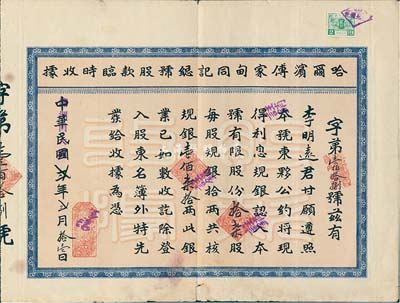 哈爾濱傅家甸同記總號股款臨時收據
字第壹佰拾捌號茲有
李明遠君甘願遵照
本號東夥公約將現
得利息現銀認入本
號有限股份拾柒股
每股現銀拾兩共核
現銀壹佰柒拾兩此銀
業已如數收訖除登
入股東名簿外特先
發給收據為憑
中華民國 年 月拾 日
字第 號